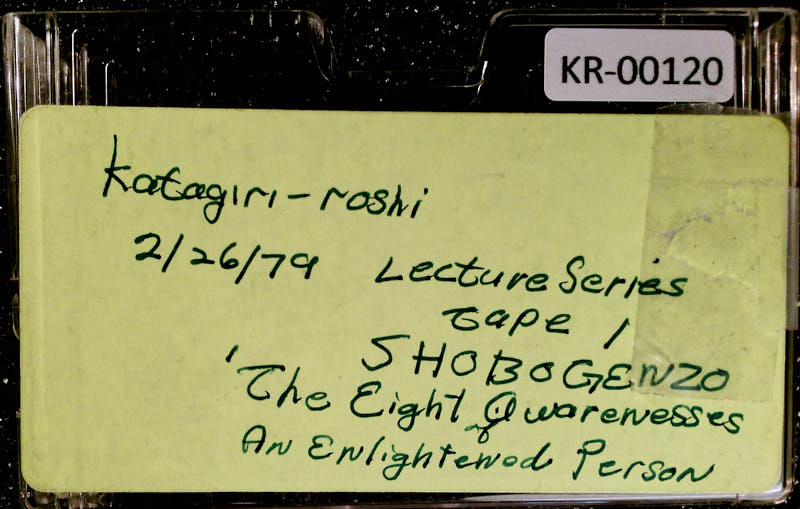 KR-00120
Katagiri-roshi
2/26/79 Lecture Series
Tape 1
SHOBOGENZO
'The Eight Awarenesses
of
An Enlightened Person